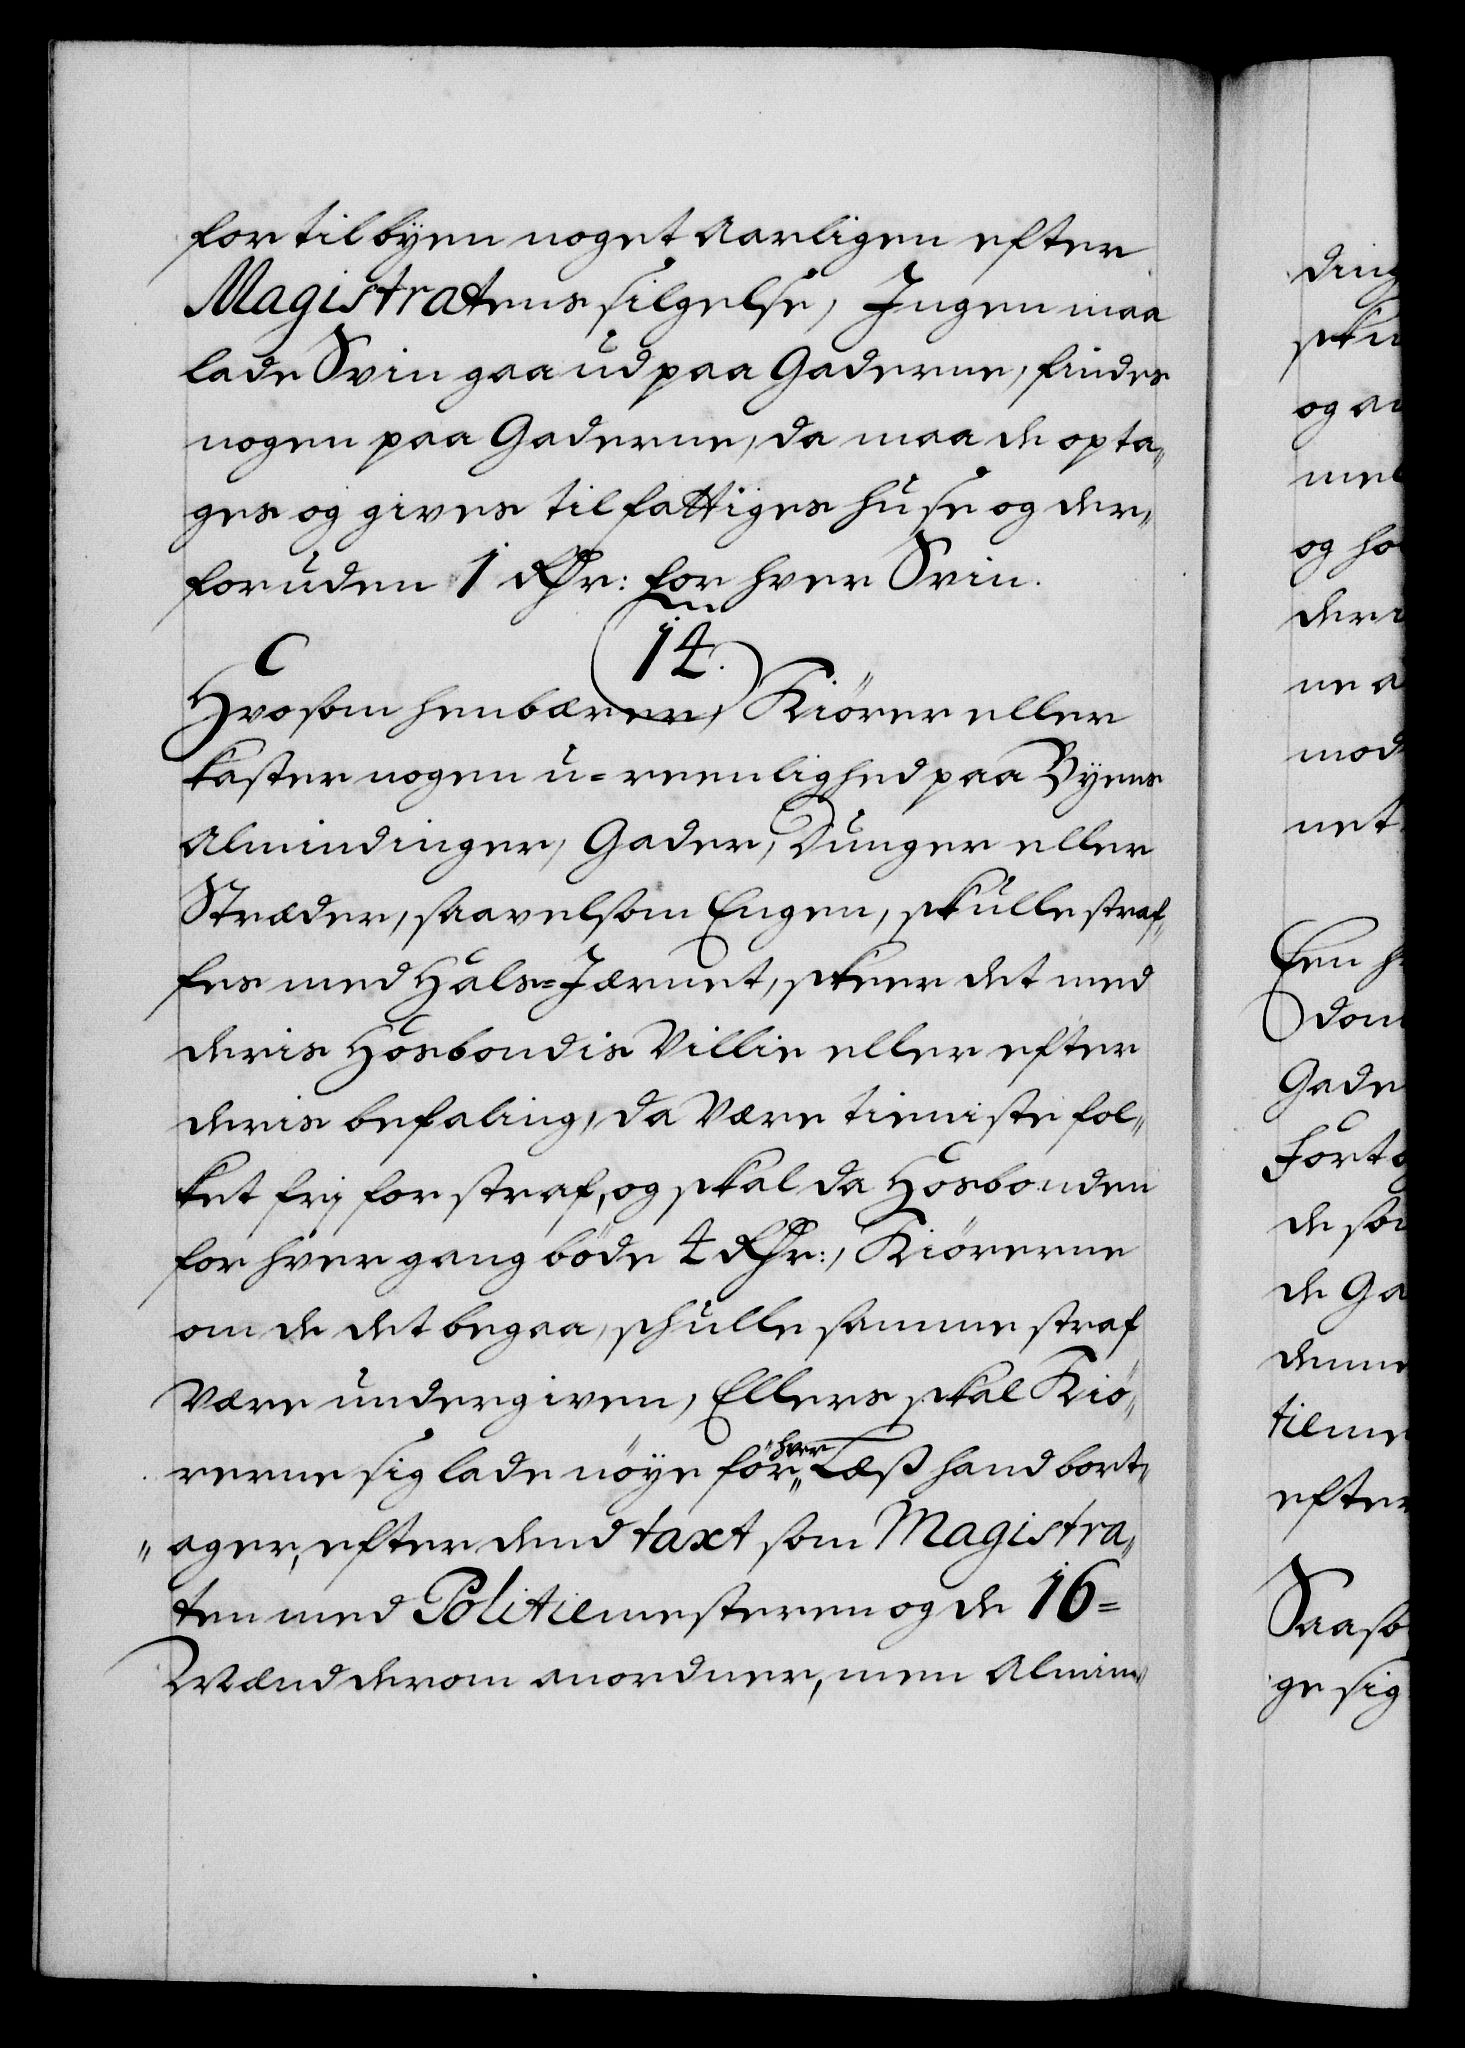 for til byen noget aarligen efter
Magistratens silgelse, Ingen maa
lade Svin gaa ud paa Gaderne, findes
nogen paa Gaderne, da maa de opta„
ges og gives til fattiges huse og der„
foruden 1 Rdr: for hver Svin.
14.
Hvo som henbærer, Kiörer eller
kaster nogen u=reenlighed paa Byens
Almindinger, Gader, Dunger eller
Stræder, saavelsom Engen, skulle straf„
fes med Hals=Jærnet, skeer det med
deris Hosbondis Villie eller efter
deris befaling, da være tieniste fol„
ket frj for straf, og skal da Hosbonden
for hver gang böde 4 Rdr:, Kiörerne
om de det begaa, schulle samme straf
være undergiven, Ellers skal Kiö„
rerne sig lade nöye för hver Læß hand bort„
„ager, efter dend taxt som Magistra„
ten med Politiemesteren og de 16=
Mænd derom anordner, men Almin„
ding
og
mel
og
ne
mod
net
Een
dom
Gade
de
de Ga
denne
efter
Saa
ge sig